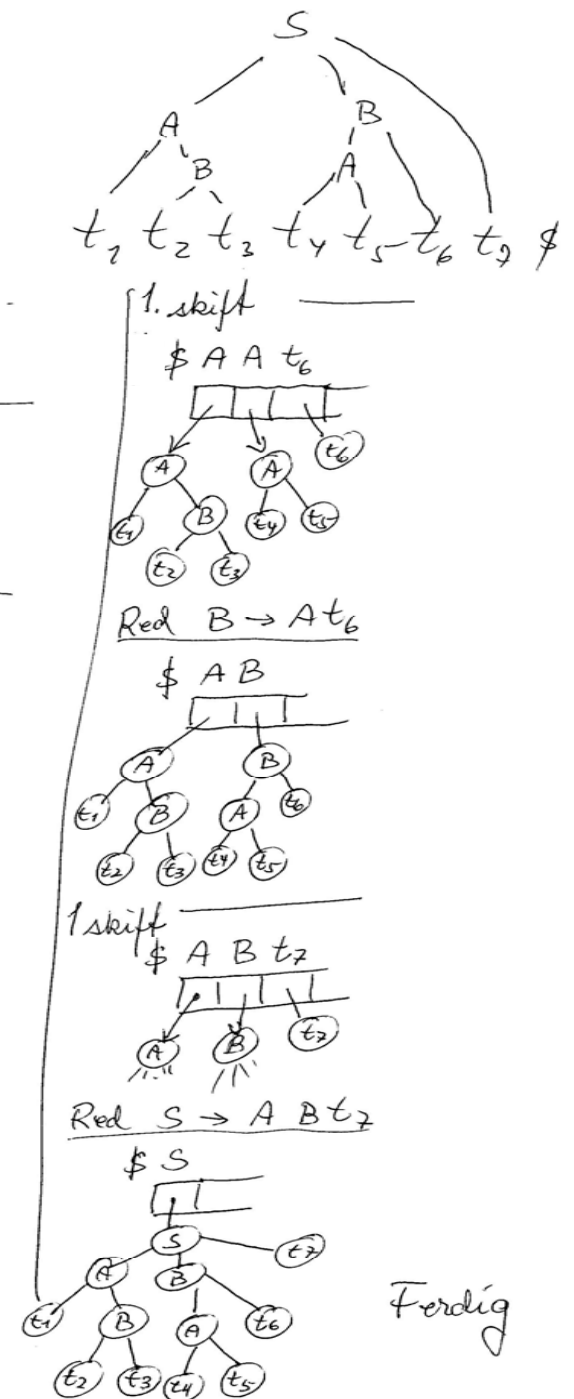 S
A B
B A
t₁ t₂ t₃ t₄ t₅ t₆ t₇ $
1. skift
$ A A t₆
t₆
A A
t₁ B t₄ t₅
t₂ t₃
Red B → A t₆
$ A B
A B
t₁ B A t₆
t₂ t₃ t₄ t₅
1 skift
$ A B t₇
A B t₇
Red S → A B t₇
$ S
S t₇
A B
t₁ B A t₆ Ferdig
t₂ t₃ t₄ t₅